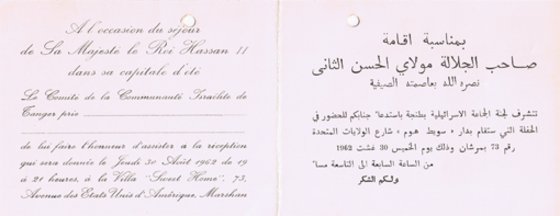 A l'occasion du séjour
de Sa Majesté le Roi Hassan II
dans sa capitale d'été
Le Comité de la Communauté Israélite de
Tanger prie
de lui faire l'honneur d'assister à la réception
qui sera donnée le Jeudi 30 Août 1962 de 19
à 21 heures, à la Villa "Sweet Home", 73,
Avenue des Etats Unis d'Amérique, Marshan
بمناسبة اقامة
صاحب الجلالة مولاي الحسن الثاني
نصره الله بعاصمته الصيفية
تتشرف لجنة الجماعة الاسرائيلية بطنجة باستدعاء جنابكم للحضور في
الحفلة التي ستقام بدار « سويط هوم » شارع الولايات المتحدة
رقم 73 بمرشان وذلك يوم الخميس 30 غشت 1962
من الساعة السابعة الى التاسعة مساء
ولكم الشكر